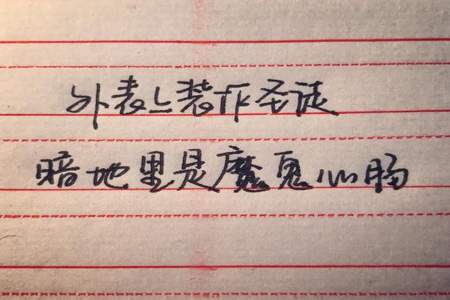 外表上装作圣徒
暗地里是魔鬼心肠